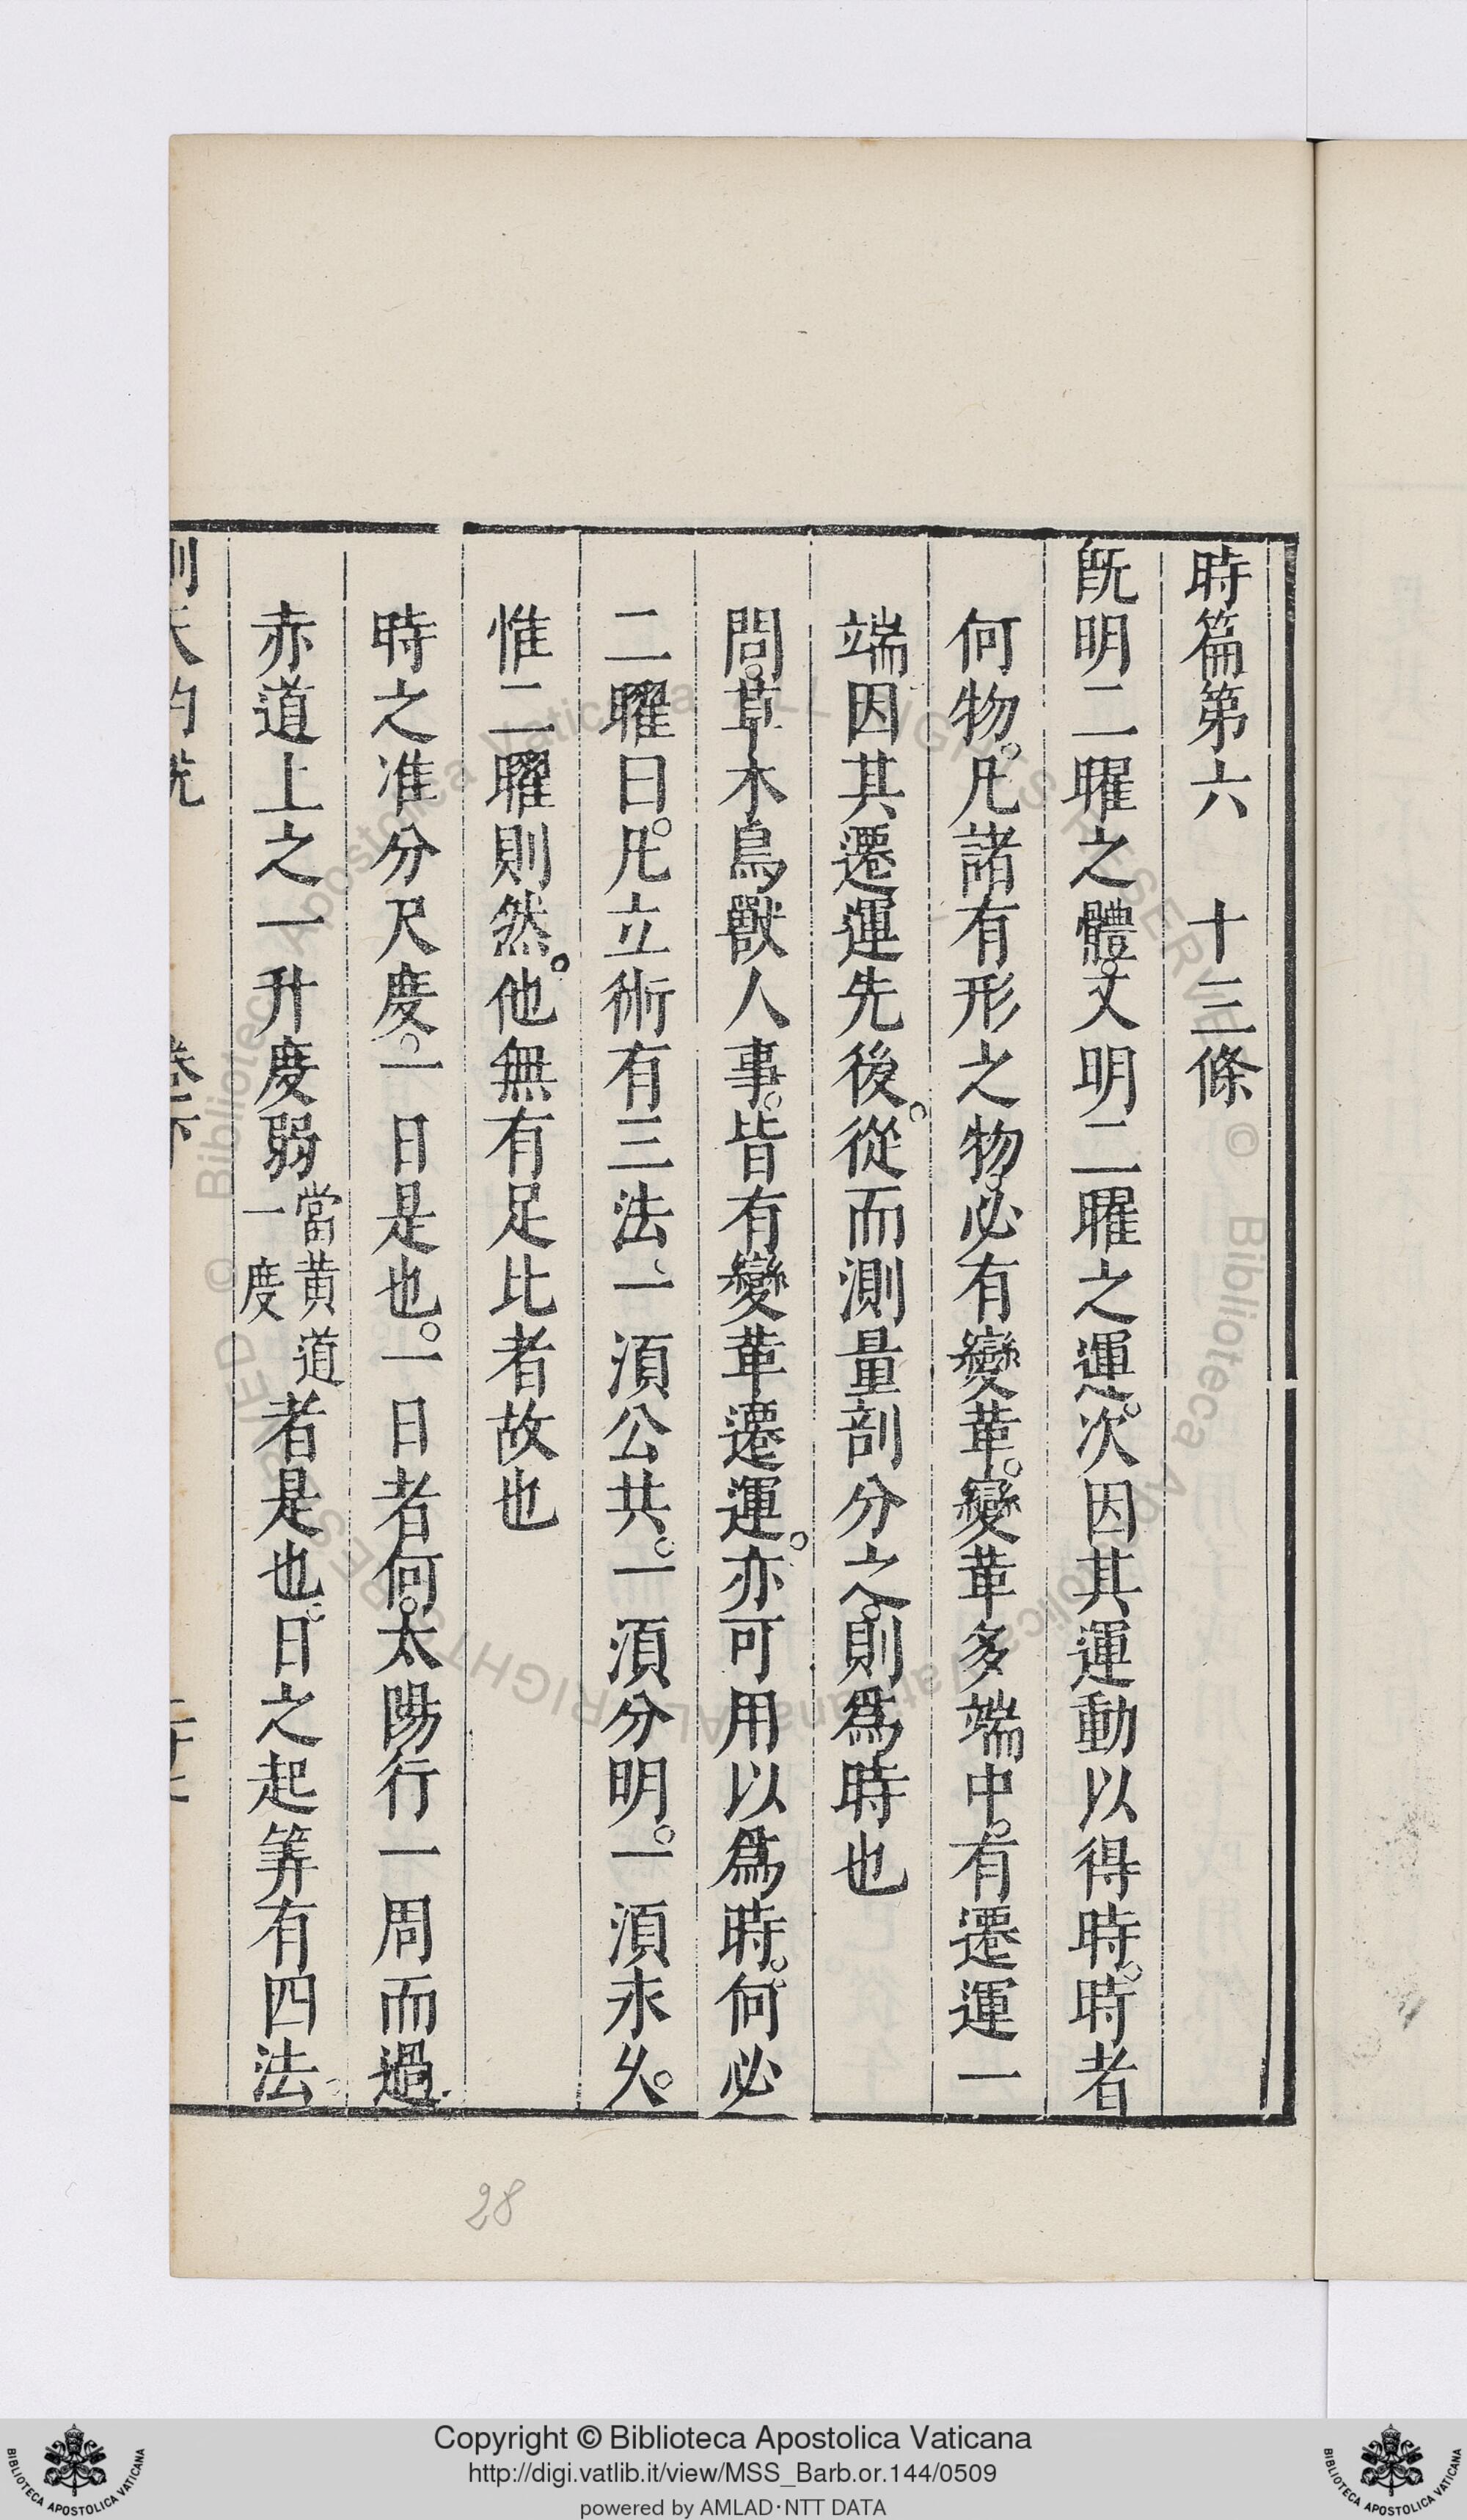 時篇第六　十三條
旣明二曜之體。又明二曜之運。次因其運動以得時。時者
何物。凡諸有形之物。必有變革。變革多端中。有遷運一
端因其遷運先後。從而測量剖分之。則爲時也
問。草木鳥獸人事。皆有變革遷運。亦可用以爲時。何必
二曜曰。凡立術有三法。一湏公共。一湏分明。一湏永久。
惟二曜則然。他無有足比者故也
時之准分尺度。一日是也。一日者何。太陽行一周而過
赤道上之一升度弱當黃道一度者是也。日之起筭有四法。
測天約說
卷下
28
Copyright © Biblioteca Apostolica Vaticana
http://digi.vatlib.it/view/MSS_Barb.or.144/0509
powered by AMLAD·NTT DATA
BIBLIOTECA APOSTOLICA VATICANA
BIBLIOTECA APOSTOLICA VATICANA